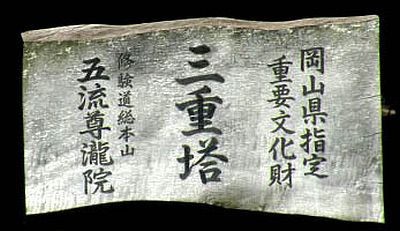 岡山県指定
重要文化財
三重塔
修験道総本山
五流尊瀧院